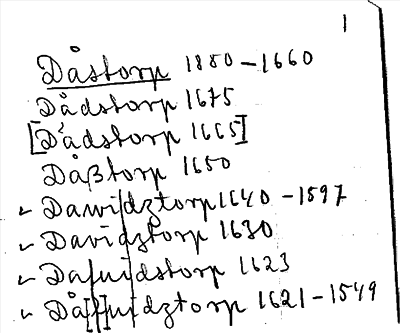 1
Dåstorp 1880-1660
Dådstorp 1675
[Dådstorp 1665]
Dåßtorp 1650
Dawidztorp 1640-1597
Davidztorp 1630
Dafuidstorp 1623
Då[f]fuidztorp 1621-1549